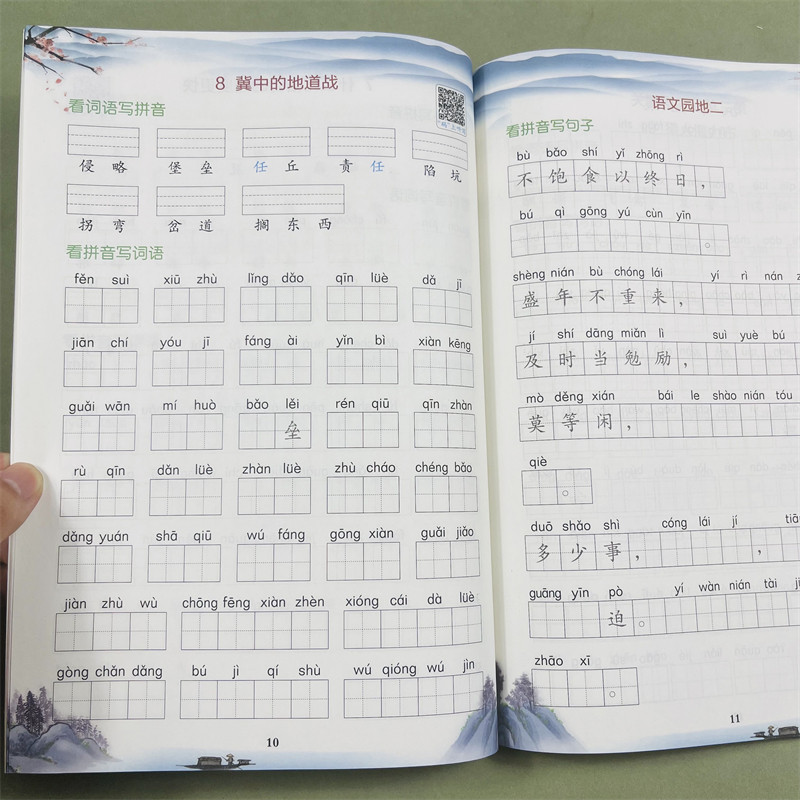 8 冀中的地道战
看词语写拼音
侵略 堡垒 任丘 责任 陷坑
拐弯 岔道 搁东西
看拼音写词语
fěn suì xiū zhù lǐng dǎo qīn lüè dǎ jī
jiān chí yóu jī fáng ài yǐn bì xiàn kēng
guǎi wān mí huò bǎo lěi rén qiū qīn zhàn
垒
rù qīn dǎn lüè zhàn lüè zhù cháo chéng bǎo
dǎng yuán shā qiū wú fáng gōng xiàn guǎi jiǎo
jiàn zhù wù chōng fēng xiàn zhèn xióng cái dà lüè
gòng chǎn dǎng bú jì qí shù wú qióng wú jìn
10
语文园地二
看拼音写句子
bù bǎo shí yǐ zhōng rì
不饱食以终日，
bú qì gōng yú cùn yīn
。
shèng nián bù chóng lái yí rì nán z
盛年不重来，
jí shí dāng miǎn lì suì yuè bú
及时当勉励，
mò děng xián bái le shào nián tóu
莫等闲，
qiè
。
duō shǎo shì cóng lái jí tiā
多少事， ，
guāng yīn pò yí wàn nián tài j
迫。
zhāo xī
。
11